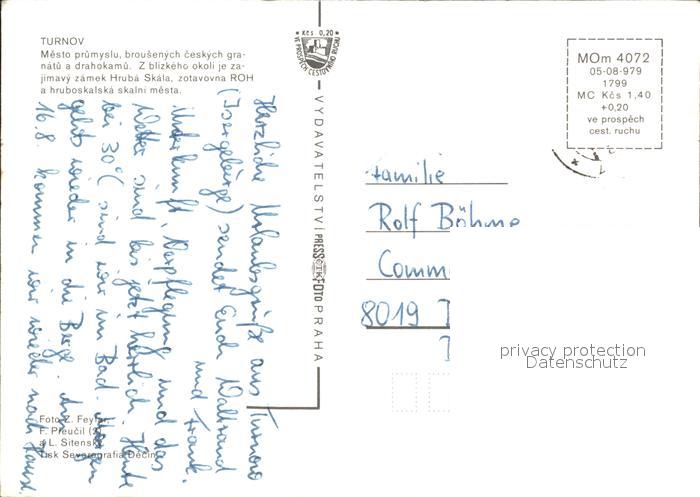 TURNOV
Město průmyslu, broušených českých gra-
nátů a drahokamů. Z blízkého okolí je za-
jímavý zámek Hrubá Skála, zotavovna ROH
a hruboskalská skalní města.
Herzliche Urlaubsgrüße aus Turnov
(Isergebirge) sendet Euch Waltraud
und Frank.
Unterkunft, Verpflegung und das
Wetter sind bis jetzt herrlich. Heute
bei 30°C sind wir im Bad. Morgen
gehts wieder in die Berge. Am
16.8. kommen wir wieder nach Hause.
Foto Z. Feyfar,
F. Přeučil (2)
a L. Sitenský
Tisk Severografia Děčín
Kčs 0,20
VE PROSPĚCH CESTOVNÍHO RUCHU
VYDAVATELSTVÍ PRESSFOTO PRAHA
ČTK
MOm 4072
05-08-979
1799
MC Kčs 1,40
+0,20
ve prospěch
cest. ruchu
Familie
Rolf Böhme
8019
privacy protection
Datenschutz